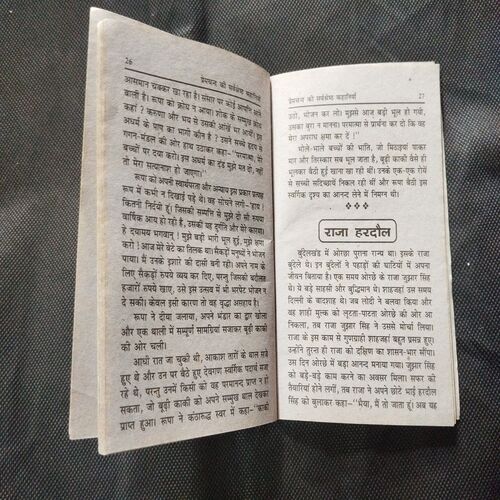 26
प्रेमचन्द की सर्वश्रेष्ठ कहानियाँ
आसमान चक्कर खा रहा है। संसार पर कोई आपत्ति आने
वाली है। रूपा को क्रोध न आया। शोक के सम्मुख क्रोध
कहां ? करुणा और भय से उसकी आंखें भर आयीं। इस
अधर्म के पाप का भागी कौन है ? उसने सच्चे हृदय से
गगन-मंडल की ओर हाथ उठाकर कहा—''परमात्मा, मेरे
बच्चों पर दया करो। इस अधर्म का दंड मुझे मत दो, नहीं
तो मेरा सत्यानाश हो जाएगा।''
रूपा को अपनी स्वार्थपरता और अन्याय इस प्रकार प्रत्यक्ष
रूप में कभी न दिखाई पड़े थे। वह सोचने लगी—'हाय !
कितनी निर्दयी हूं। जिसकी सम्पत्ति से मुझे दो सौ रुपया
वार्षिक आय हो रही है, उसकी यह दुर्गति और मेरे कारण।
हे दयामय भगवान् ! मुझे बड़ी भारी भूल हुई, मुझे क्षमा
करो ! आज मेरे बेटे का तिलक था। सैकड़ों मनुष्यों ने भोजन
पाया। मैं उनके इशारे की दासी बनी रही। अपने नाम के
लिए सैकड़ों रुपये व्यय कर दिए, परन्तु जिसकी बदौलत
हजारों रुपये खाए, उसे इस उत्सव में भी भरपेट भोजन न
दे सकी। केवल इसी कारण तो वह वृद्धा असहाय है।
रूपा ने दीया जलाया, अपने भंडार का द्वार खोला
और एक थाली में सम्पूर्ण सामग्रियां सजाकर बूढ़ी काकी
की ओर चली।
आधी रात जा चुकी थी, आकाश तारों के थाल सजे
हुए थे और उन पर बैठे हुए देवगण स्वर्गिक पदार्थ सजा
रहे थे, परन्तु उनमें किसी को वह परमानन्द प्राप्त न हो
सकता, जो बूढ़ी काकी को अपने सम्मुख थाल देखकर
प्राप्त हुआ। रूपा ने कंठारुद्ध स्वर में कहा—''काकी
प्रेमचन्द की सर्वश्रेष्ठ कहानियाँ
27
उठो, भोजन कर लो। मुझसे आज बड़ी भूल हो गयी,
उसका बुरा न मानना। परमात्मा से प्रार्थना कर दो कि वह
मेरा अपराध क्षमा कर दें !''
भोले-भाले बच्चों की भांति, जो मिठाइयां पाकर
मार और तिरस्कार सब भूल जाता है, बूढ़ी काकी वैसे ही
भुलाकर बैठी हुई खाना खा रही थी। उनके एक-एक रोयें
से सच्ची सदिच्छायें निकल रही थीं और रूपा बैठी इस
स्वर्गिक दृश्य का आनन्द लेने में निमग्न थी।
❖❖❖
राजा हरदौल
बुंदेलखंड में ओरछा पुराना राज्य था। इसके राजा
बुंदेले थे। इन बुंदेलों ने पहाड़ों की घाटियों में अपना
जीवन बिताया है। एक समय ओरछे के राजा जुझार सिंह
थे। ये बड़े साहसी और बुद्धिमान थे। शाहजहां उस समय
दिल्ली के बादशाह थे। जब लोदी ने बलवा किया और
वह शाही मुल्क को लूटता-पाटता ओरछे की ओर आ
निकला, तब राजा जुझार सिंह ने उससे मोर्चा लिया।
राजा के इस काम से गुणग्राही शाहजहां बहुत प्रसन्न हुए।
उन्होंने तुरन्त ही राजा को दक्षिण का शासन-भार सौंपा।
उस दिन ओरछे में बड़ा आनन्द मनाया गया। जुझार सिंह
को बड़े-बड़े काम करने का अवसर मिला। सफर की
तैयारियां होने लगीं, तब राजा ने अपने छोटे भाई हरदौल
सिंह को बुलाकर कहा—''भैया, मैं तो जाता हूं। अब यह